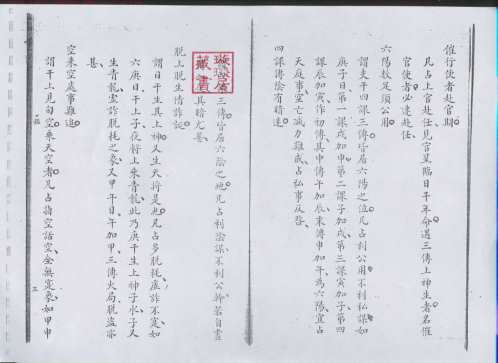 催行使者赴官期
凡占上官赴任見官星臨日干年命遇三傳上神生者名催
官使者必速赴任
六陽數足須公用
謂支干四課三傳皆居六陽之位凡占利公用不利私謀如
庚子日第一課戌加申第二課子加戌第三課寅加子第四
課辰加寅第初傳其申傳午加辰末傳申加午為六陽宜占
天庭事空亡減力雖或占私事反咎
四課傳陰有稽迷
三傳皆居六陰之地凡占利陰謀不利公幹若自晝
其暗尤甚
藏書
脫上脫生情詐誕
謂日干生其上神又生天將是也凡占多脫耗虛詐不寔如
六庚日干上子夜貴上乘青龍此乃庚干生上神子水子又
生青龍虛詐脫耗之象又甲午日午加甲三傳火局脫盜
甚
空乘空處事難追
謂干上見旬空乘天空者凡占指空話空全無寔象如甲申
三